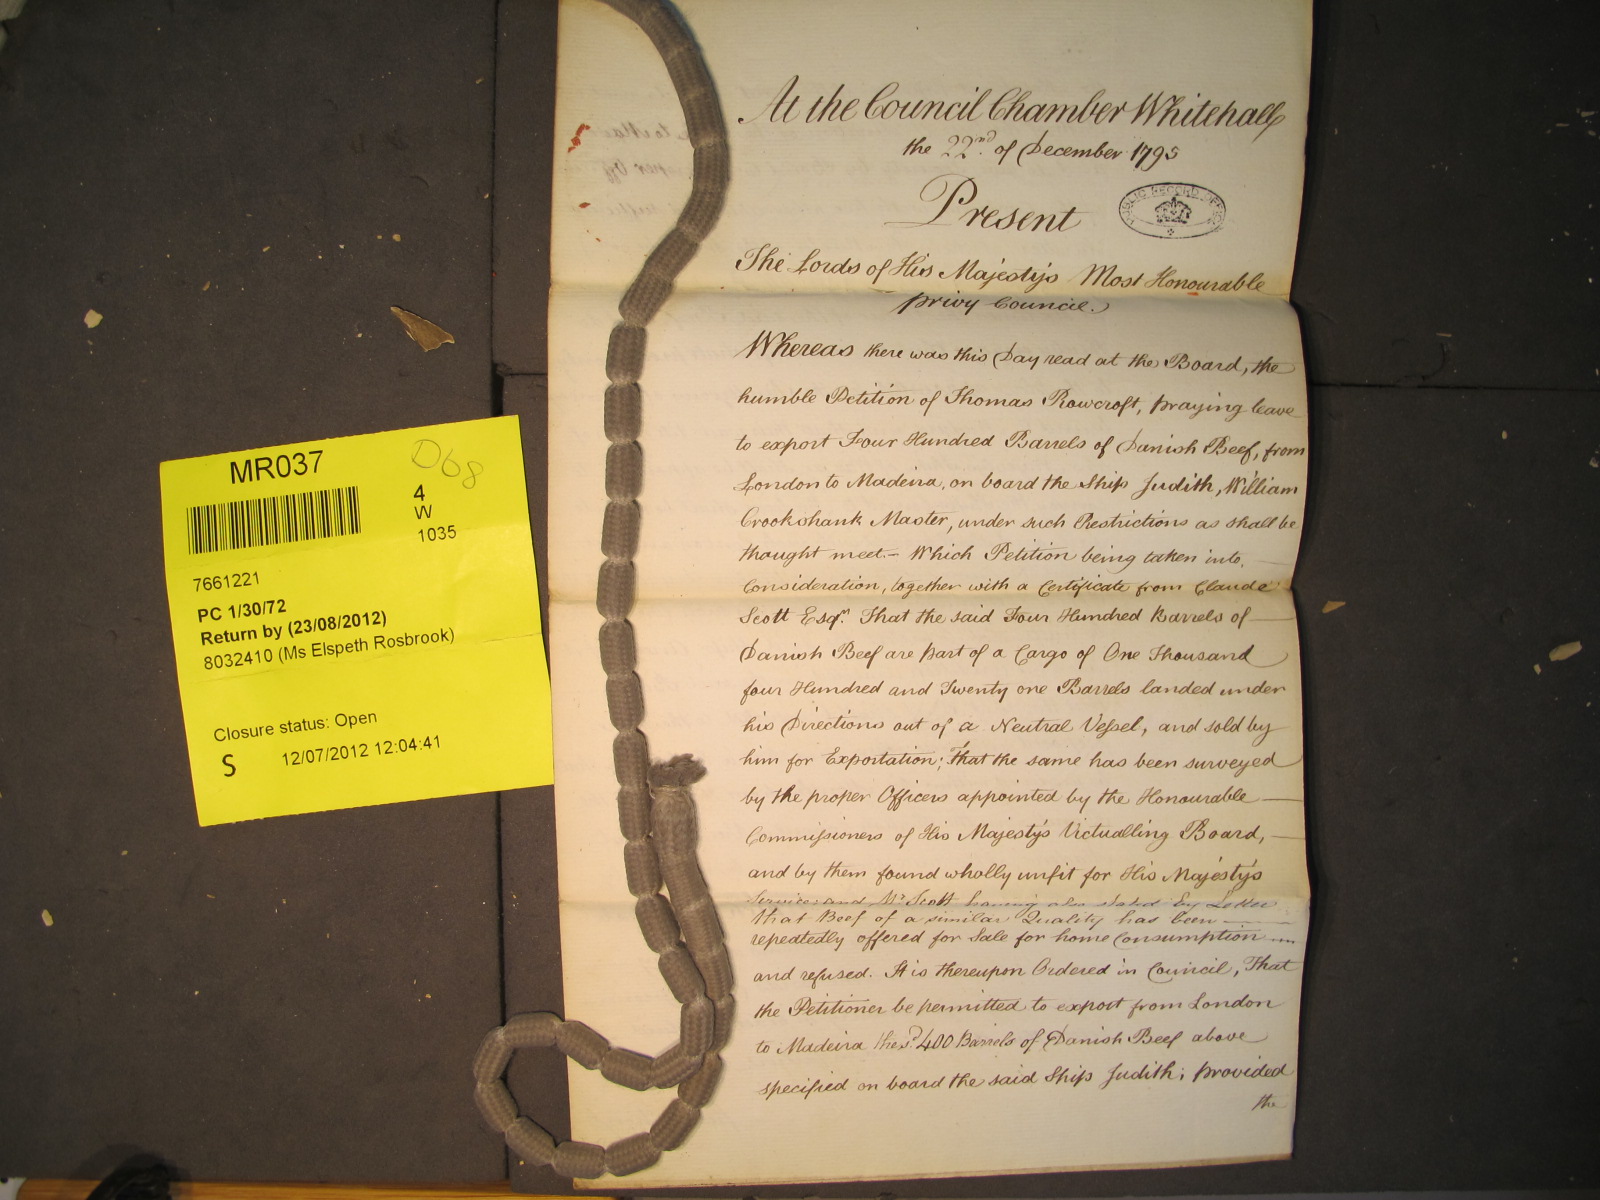 MR037
D68
4
W
1035
7661221
PC 1/30/72
Return by (23/08/2012)
8032410 (Ms Elspeth Rosbrook)
Closure status: Open
S 12/07/2012 12:04:41
At the Council Chamber Whitehall
the 22nd of December 1795
PUBLIC RECORD OFFICE
Present
The Lords of His Majesty's Most Honourable
Privy Council.
Whereas there was this Day read at the Board, the
humble Petition of Thomas Rowcroft, praying leave
to export Four Hundred Barrels of Danish Beef, from
London to Madeira, on board the Ship Judith, William
Crookshank Master, under such Restrictions as shall be
thought meet.- Which Petition being taken into
Consideration, together with a Certificate from Claude
Scott Esqr. That the said Four Hundred Barrels of
Danish Beef are part of a Cargo of One Thousand
four Hundred and Twenty one Barrels landed under
his Directions out of a Neutral Vessel, and sold by
him for Exportation; That the same has been surveyed
by the proper Officers appointed by the Honourable
Commissioners of His Majesty's Victualling Board,
and by them found wholly unfit for His Majesty's
Service and Mr Scott having also stated by Letter
that Beef of a similar Quality has been
repeatedly offered for Sale for home Consumption
and refused. It is thereupon Ordered in Council, That
the Petitioner be permitted to export from London
to Madeira the sd. 400 Barrels of Danish Beef above
specified on board the said Ship Judith; provided
the